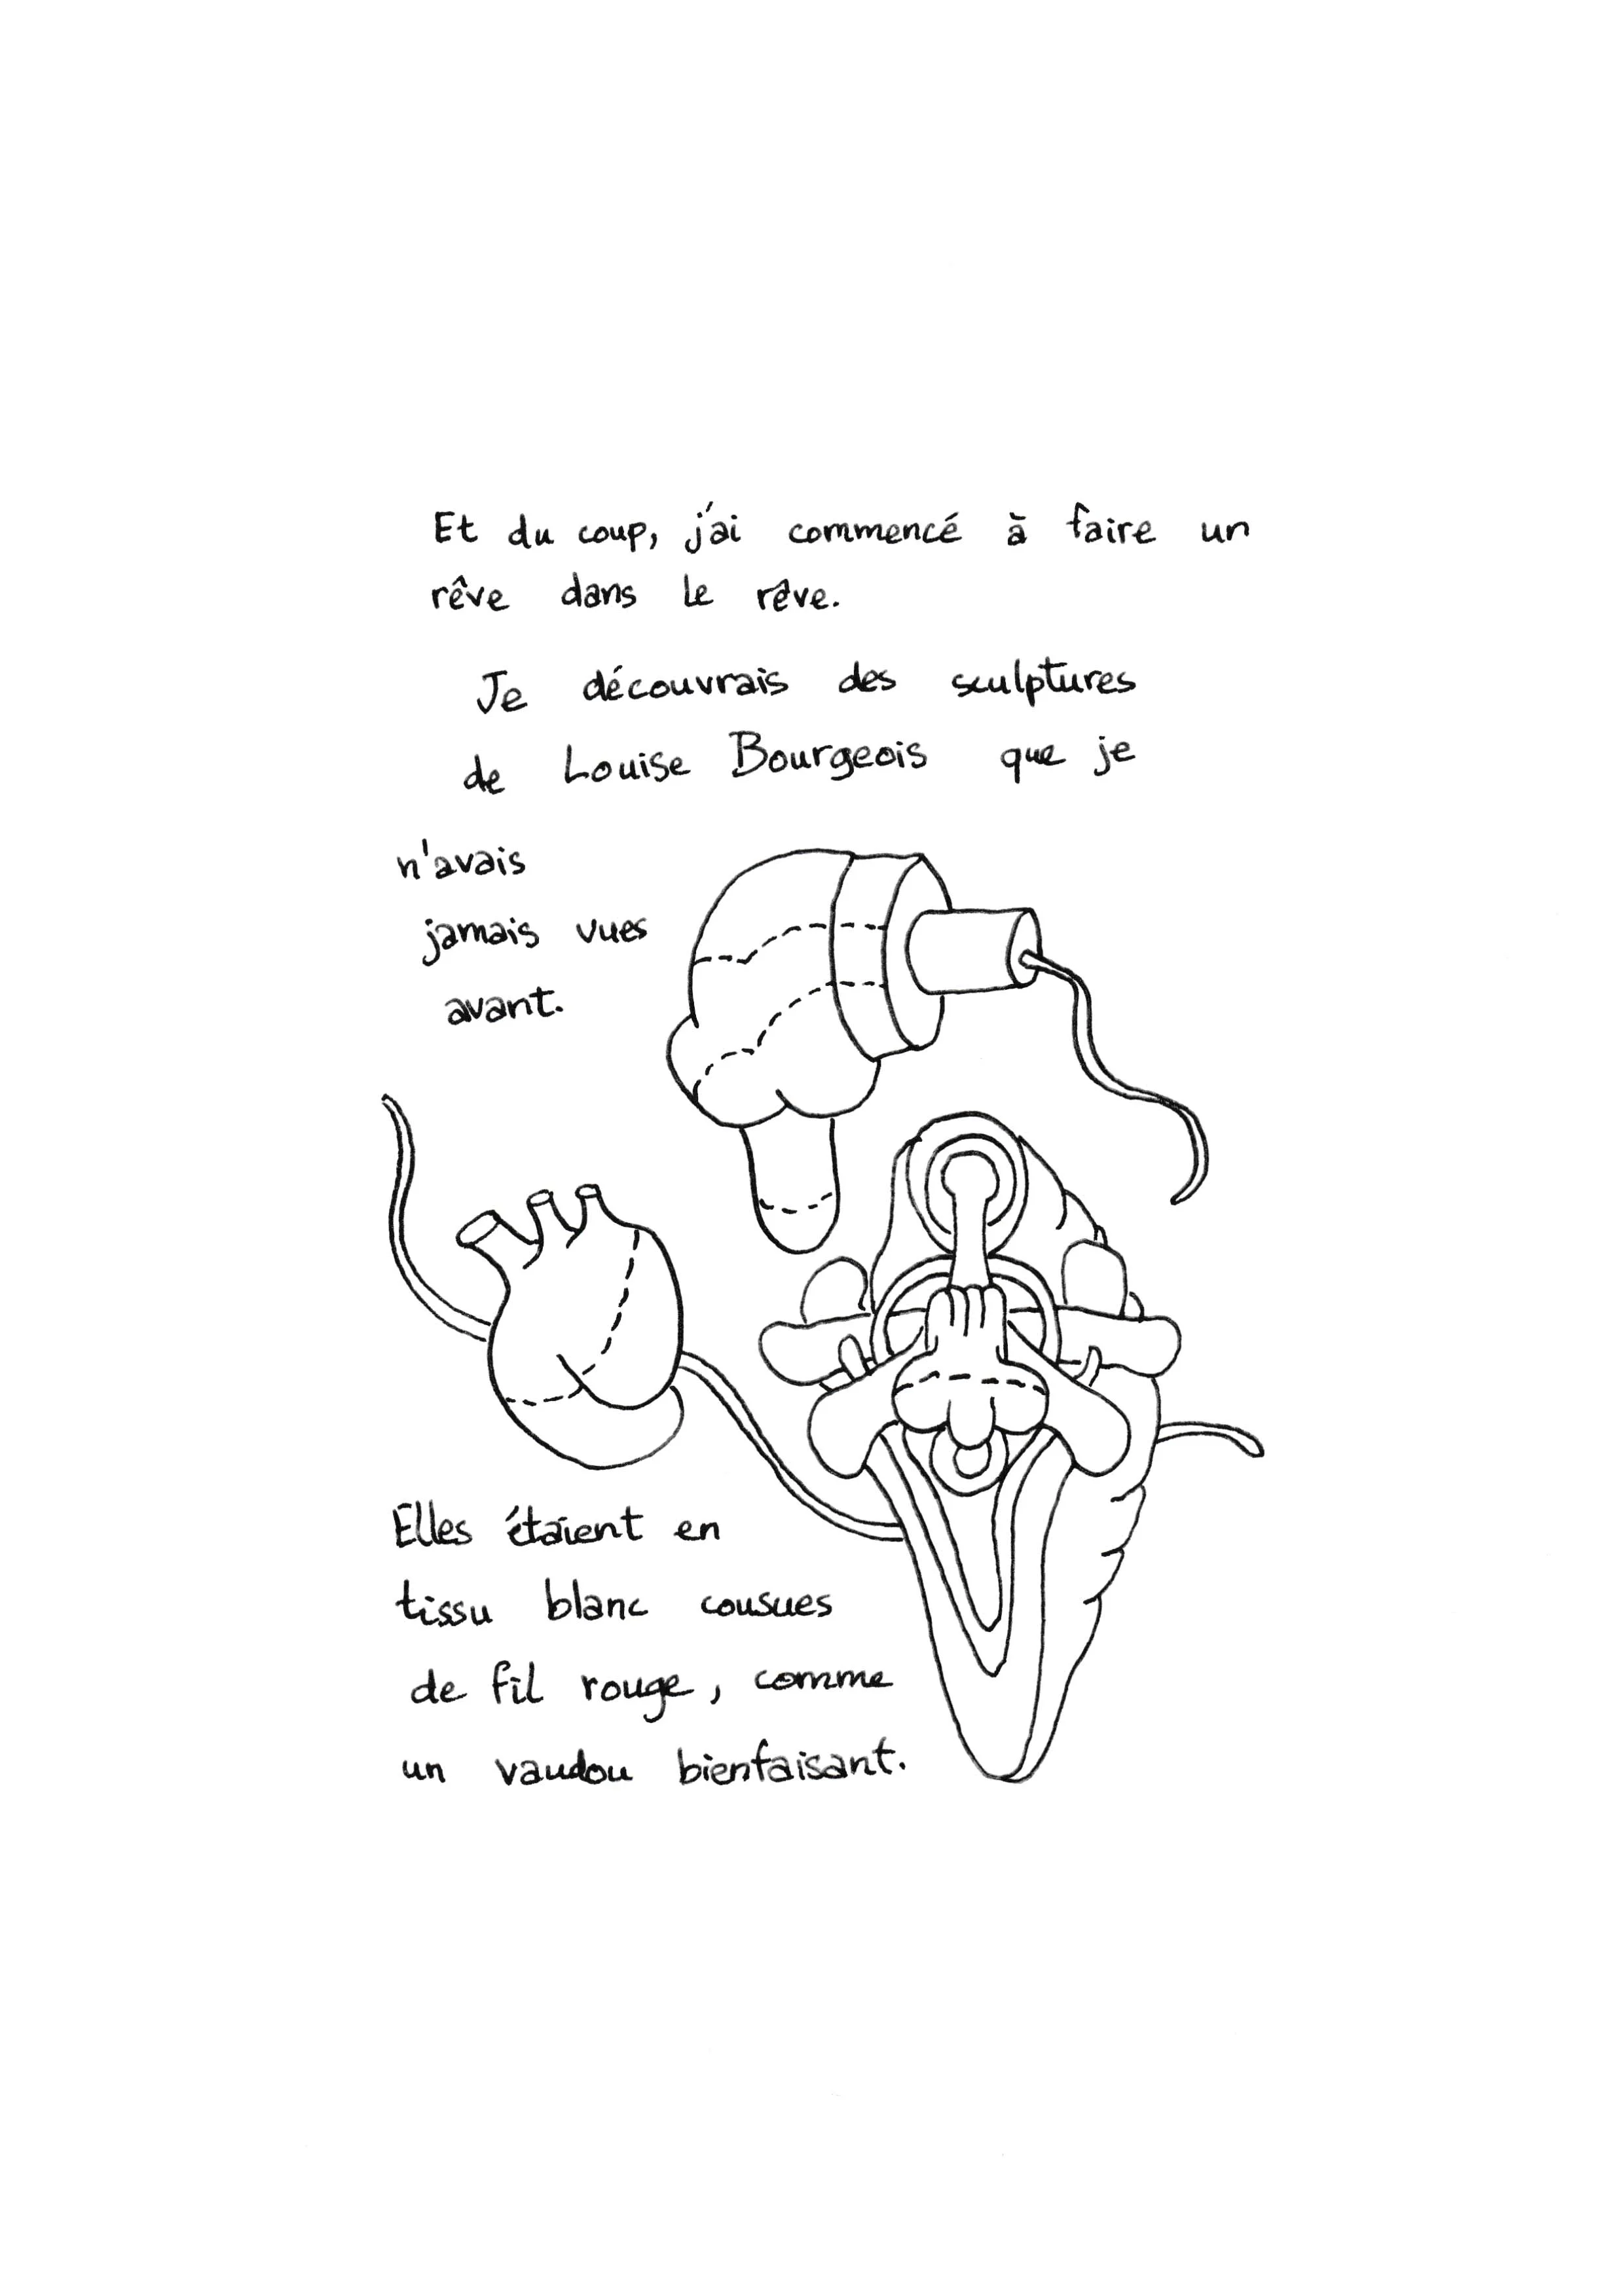 Et du coup, j'ai commencé à faire un
rêve dans le rêve.
Je découvrais des sculptures
de Louise Bourgeois que je
n'avais
jamais vues
avant.
Elles étaient en
tissu blanc cousues
de fil rouge, comme
un vaudou bienfaisant.